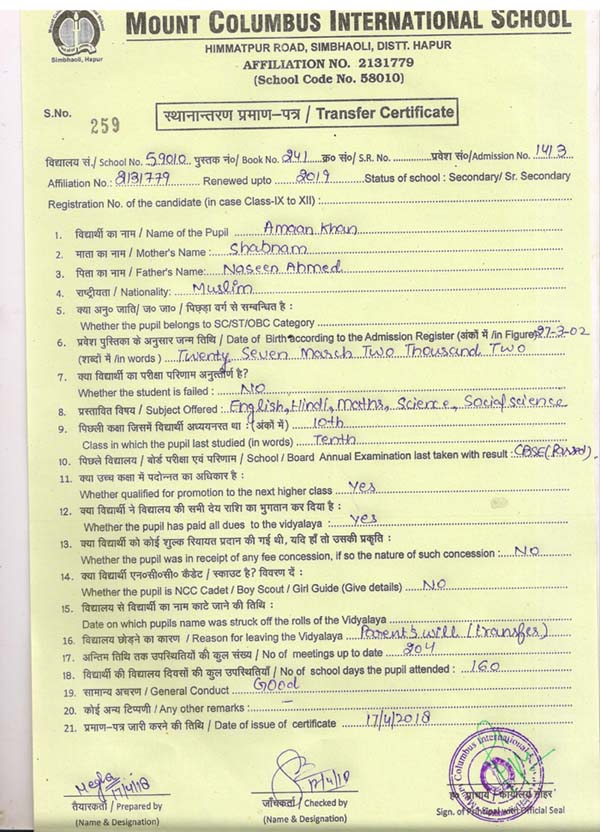 MOUNT COLUMBUS INTERNATIONAL SCHOOL
Simbhaoli, Hapur
HIMMATPUR ROAD, SIMBHAOLI, DISTT. HAPUR
AFFILIATION NO. 2131779
(School Code No. 58010)
S.No. 259
स्थानान्तरण प्रमाण-पत्र / Transfer Certificate
विद्यालय सं./ School No. 59010 पुस्तक नं०/ Book No. 241 क्र० सं०/ S.R. No. प्रवेश सं०/Admission No. 1413
Affiliation No.: 2131779 Renewed upto 2019 Status of school : Secondary/ Sr. Secondary
Registration No. of the candidate (in case Class-IX to XII) :
1. विद्यार्थी का नाम / Name of the Pupil Amaan Khan
2. माता का नाम / Mother's Name : Shabnam
3. पिता का नाम / Father's Name: Naseen Ahmed
4. राष्ट्रीयता / Nationality: Muslim
5. क्या अनु० जाति/ ज० जा० / पिछड़ा वर्ग से सम्बन्धित है :
Whether the pupil belongs to SC/ST/OBC Category
6. प्रवेश पुस्तिका के अनुसार जन्म तिथि / Date of Birth according to the Admission Register (अंकों में /in Figure) 27-3-02
(शब्दों में /in words ) Twenty Seven March Two Thousand Two
7. क्या विद्यार्थी का परीक्षा परिणाम अनुत्तीर्ण है?
Whether the student is failed : NO
8. प्रस्तावित विषय / Subject Offered : English, Hindi, Maths, Science, Social science
9. पिछली कक्षा जिसमें विद्यार्थी अध्ययनरत था : (अंकों में) 10th
Class in which the pupil last studied (in words) Tenth
10. पिछले विद्यालय / बोर्ड परीक्षा एवं परिणाम / School / Board Annual Examination last taken with result : CBSE (Passed)
11. क्या उच्च कक्षा में पदोन्नत का अधिकार है :
Whether qualified for promotion to the next higher class yes
12. क्या विद्यार्थी ने विद्यालय की सभी देय राशि का भुगतान कर दिया है :
Whether the pupil has paid all dues to the vidyalaya : yes
13. क्या विद्यार्थी को कोई शुल्क रियायत प्रदान की गई थी, यदि हाँ तो उसकी प्रकृति :
Whether the pupil was in receipt of any fee concession, if so the nature of such concession : NO
14. क्या विद्यार्थी एन०सी०सी० कैडेट / स्काउट है? विवरण दें :
Whether the pupil is NCC Cadet / Boy Scout / Girl Guide (Give details) NO
15. विद्यालय से विद्यार्थी का नाम काटे जाने की तिथि :
Date on which pupils name was struck off the rolls of the Vidyalaya
16. विद्यालय छोड़ने का कारण / Reason for leaving the Vidyalaya Parent's will (transfer)
17. अन्तिम तिथि तक उपस्थितियों की कुल संख्या / No of meetings up to date 204
18. विद्यार्थी की विद्यालय दिवसों की कुल उपस्थितियाँ / No of school days the pupil attended : 160
19. सामान्य अचरण / General Conduct Good
20. कोई अन्य टिप्पणी / Any other remarks : –
21. प्रमाण-पत्र जारी करने की तिथि / Date of issue of certificate 17/4/2018
Megha 17/4/18
17/4/18
Mount Columbus International
तैयारकर्ता / Prepared by
(Name & Designation)
जाँचकर्ता / Checked by
(Name & Designation)
ह० प्राचार्य / कार्यालय मोहर
Sign. of Principal with Official Seal